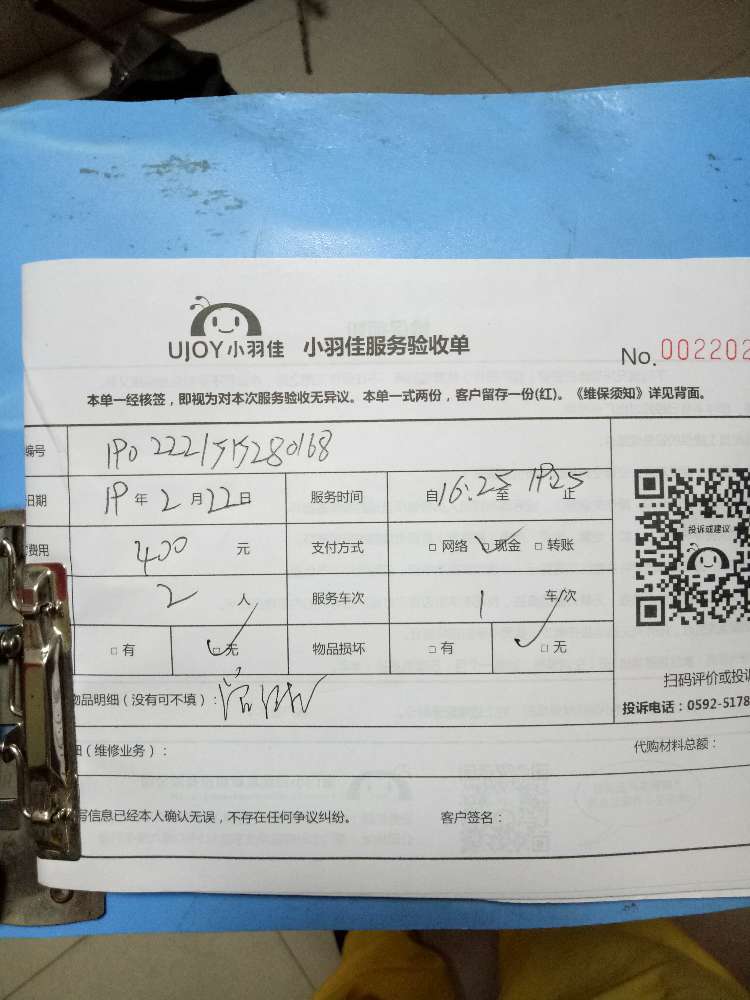 UJOY小羽佳 小羽佳服务验收单
No.002202
本单一经核签，即视为对本次服务验收无异议。本单一式两份，客户留存一份(红)。《维保须知》详见背面。
编号
日期 19年2月22日 服务时间 自16:25至19:25止
费用 400元 支付方式 □网络 □现金 □转账
2人 服务车次 1车/次
□有 □无 物品损坏 □有 □无
投诉或建议
扫码评价或投诉
物品明细（没有可不填）：
投诉电话：0592-5178
（维修业务）： 代购材料总额：
写信息已经本人确认无误，不存在任何争议纠纷。 客户签名：